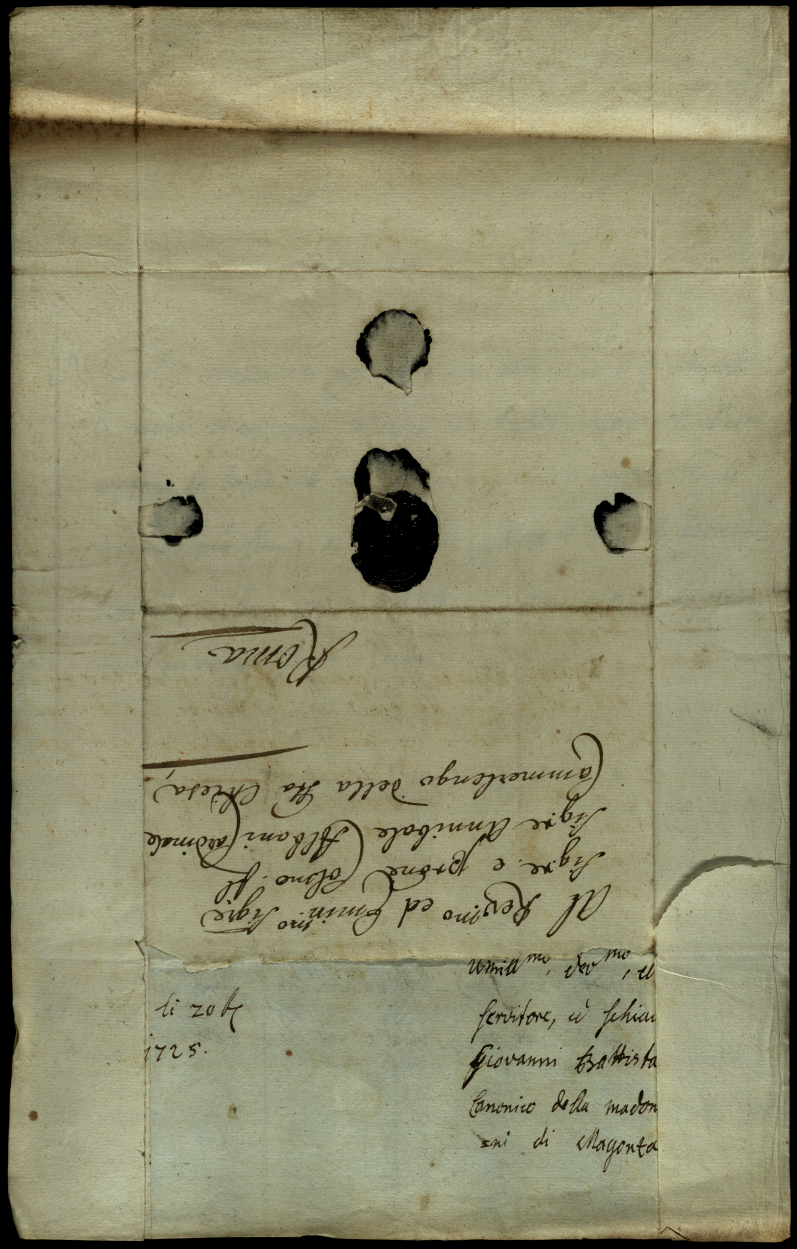 Al Rev.mo ed Emin.mo Sigre
Sigre e prōne Colmo. Il
Sigre Annibale Albani Cardinale
Cammerlengo della Sta Chiesa,
Roma
umillmo, devmo,
servitore, è schia
Giovanni Battista
Canonico della madon
ni di Magonza
li 20
1725.